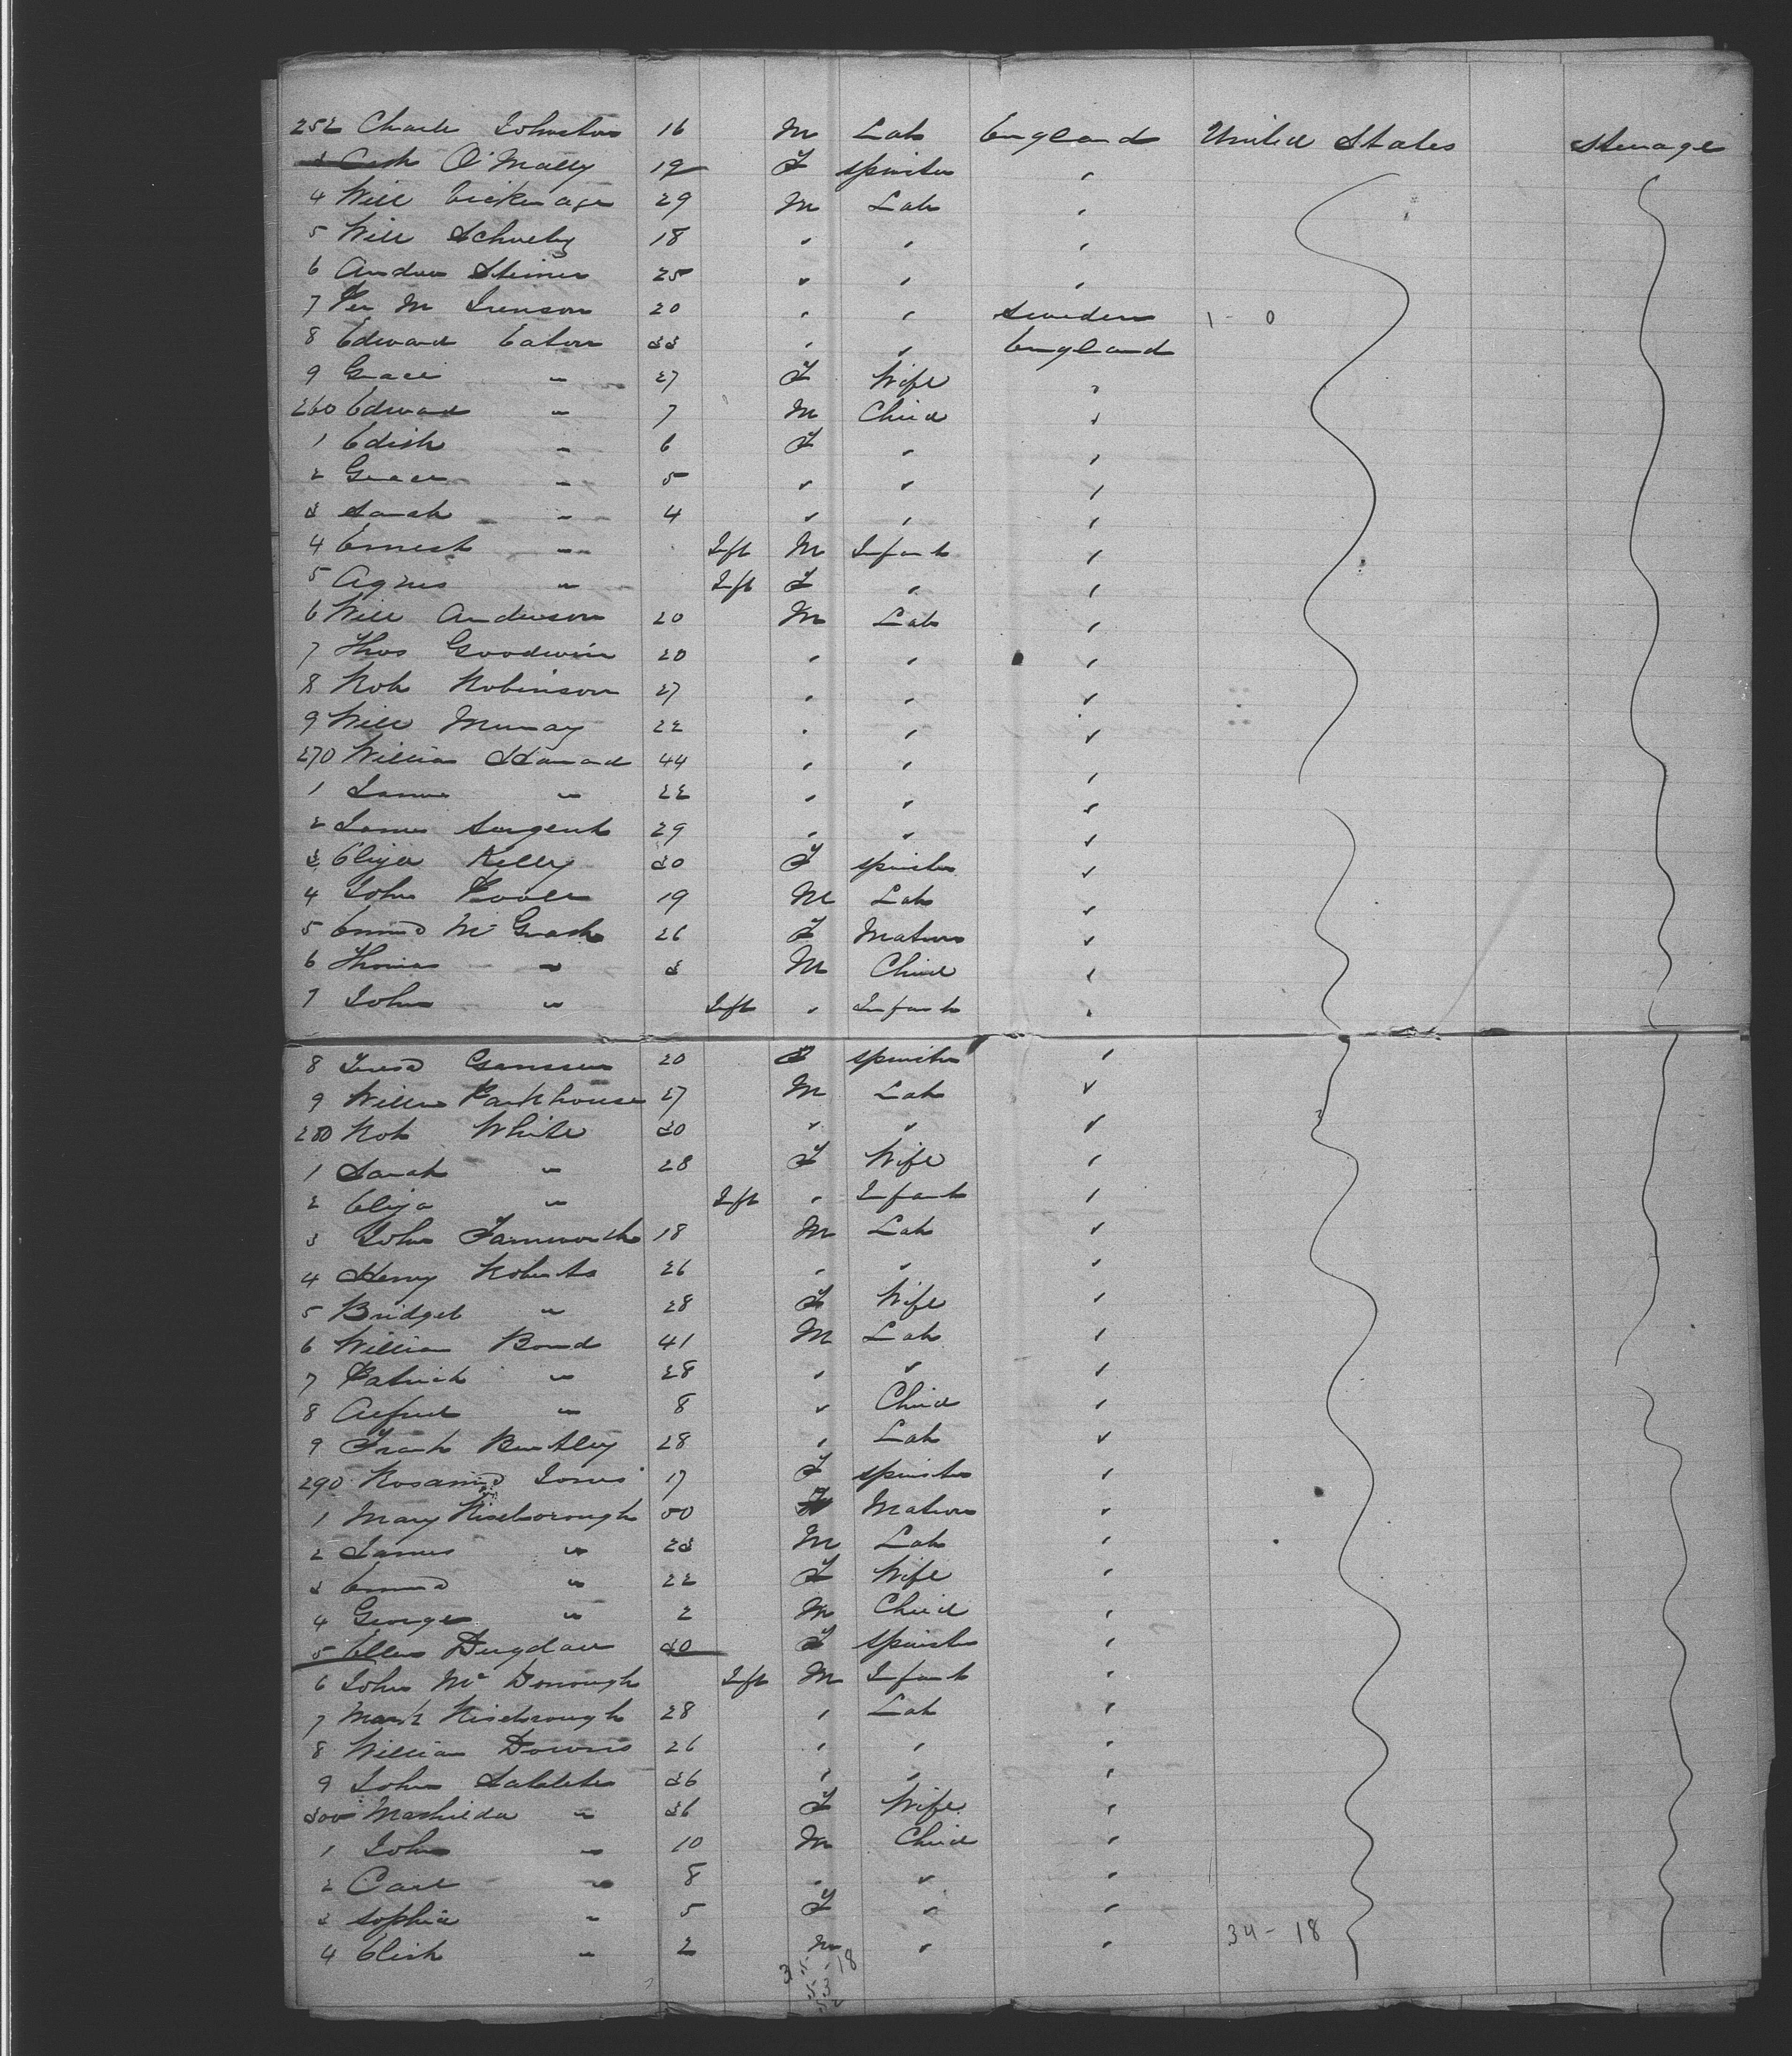 252 Charle Johnston 16 M Lab England United States Steerage
3 Cath O'Mally 19 F Spinster "
4 Will 29 M Lab "
5 Will 18 " " "
6 Andrew Steiner 25 " " "
7 Per M 20 " " Sweden 1 - 0
8 Edward Eaton 33 " " England
9 Grace " 27 F Wife "
260 Edward " 7 M Child "
1 Edith " 6 F " "
2 Grace " 5 " " "
3 Sarah " 4 " " "
4 Ernest " Inft M Infant "
5 Agnes " Inft F " "
6 Will Anderson 20 M Lab "
7 Thos Goodwin 20 " " "
8 Rob Robinson 27 " " "
9 Will Murray 22 " " "
270 William 44 " " "
1 James " 22 " " "
2 James Sargent 29 " " "
3 Eliza Kelly 30 F Spinster "
4 John Poole 19 M Lab "
5 Emma McGrath 26 F Matron "
6 Thomas " 3 M Child "
7 John " Inft " Infant "
8 20 F Spinster "
9 Willm Parkhouse 27 M Lab "
280 Rob White 30 " " "
1 Sarah " 28 F Wife "
2 Eliza " Inft " Infant "
3 John Farnworth 18 M Lab "
4 Henry Roberts 26 " " "
5 Bridget " 28 F Wife "
6 William Bond 41 M Lab "
7 Patrick " 28 " " "
8 Alfred " 8 " Child "
9 Frank Bentley 28 " Lab "
290 Rosanna Jones 17 F Spinster "
1 Mary Riseborough 50 F Matron "
2 James " 23 M Lab "
3 Emma " 22 F Wife "
4 George " 2 M Child "
5 Ellen Dugdale 30 F Spinster "
6 John McDonough Inft M Infant "
7 Mark Riseborough 28 " Lab "
8 William Downs 26 " " "
9 John 36 " " "
300 Mathilda " 36 F Wife "
1 John " 10 M Child "
2 Carl " 8 " " "
3 Sophia " 5 F " "
4 " 2 M " " 34 - 18